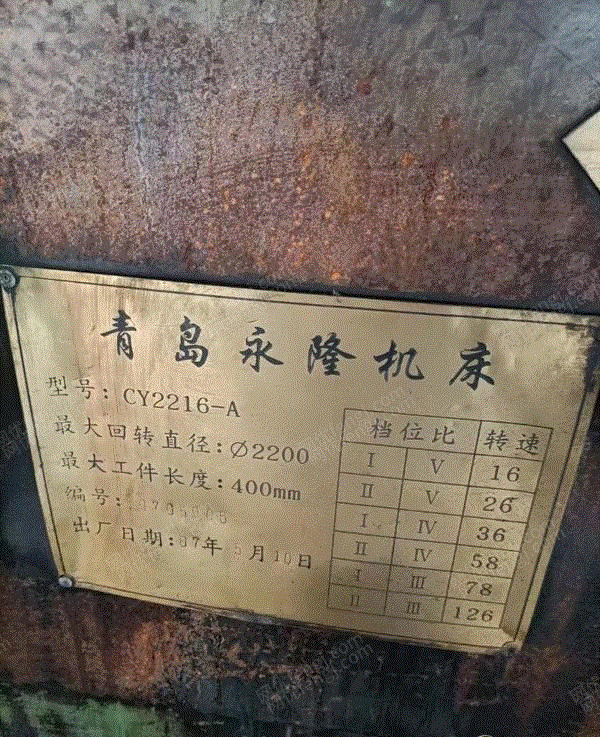 青岛永隆机床
型号：CY2216-A
最大回转直径：Ø2200
最大工件长度：400mm
编号：
出厂日期：07年5月10日
档位比 转速
Ⅰ Ⅴ 16
Ⅱ Ⅴ 26
Ⅰ Ⅳ 36
Ⅱ Ⅳ 58
Ⅰ Ⅲ 78
Ⅱ Ⅲ 126